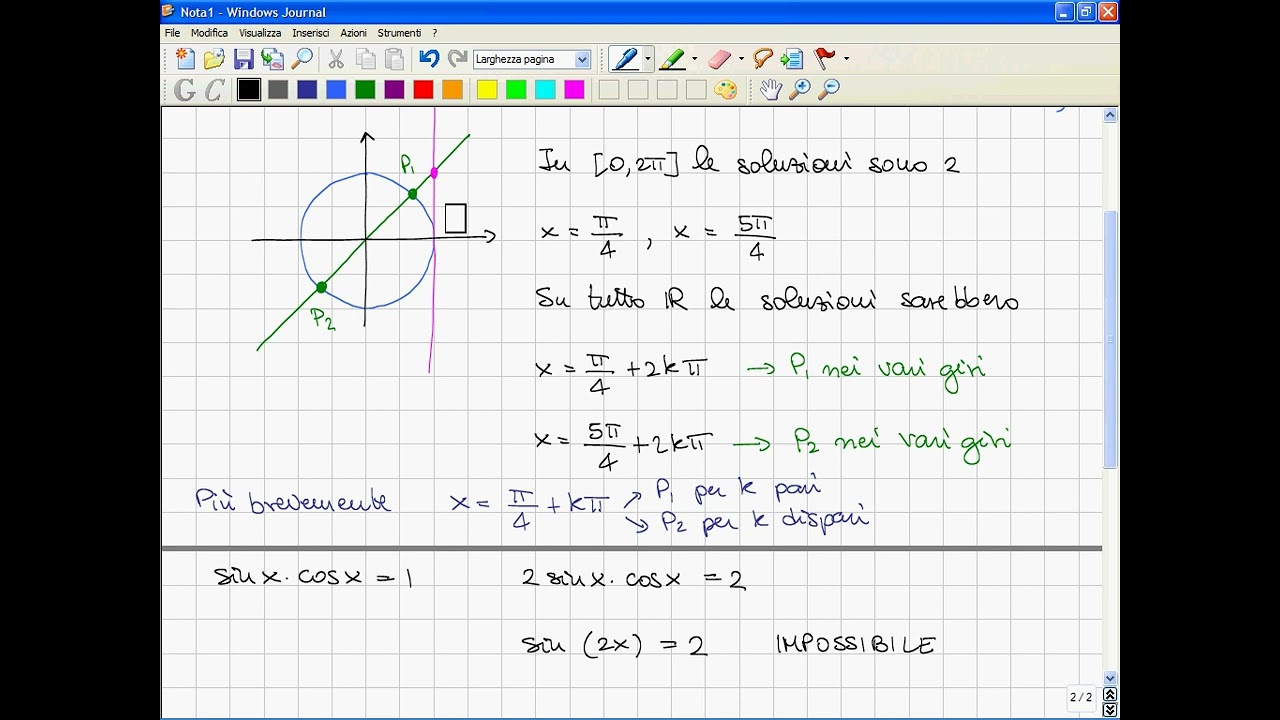 Nota1 - Windows Journal
File Modifica Visualizza Inserisci Azioni Strumenti ?
Larghezza pagina
G C
P₁
P₂
In [0,2π] le soluzioni sono 2
x = π/4 , x = 5π/4
Su tutto ℝ le soluzioni sarebbero
x = π/4 + 2kπ → P₁ nei vari giri
x = 5π/4 + 2kπ → P₂ nei vari giri
Più brevemente x = π/4 + kπ ↗ P₁ per k pari
↘ P₂ per k dispari
sin x · cos x = 1 2 sin x · cos x = 2
sin (2x) = 2 IMPOSSIBILE
2 / 2